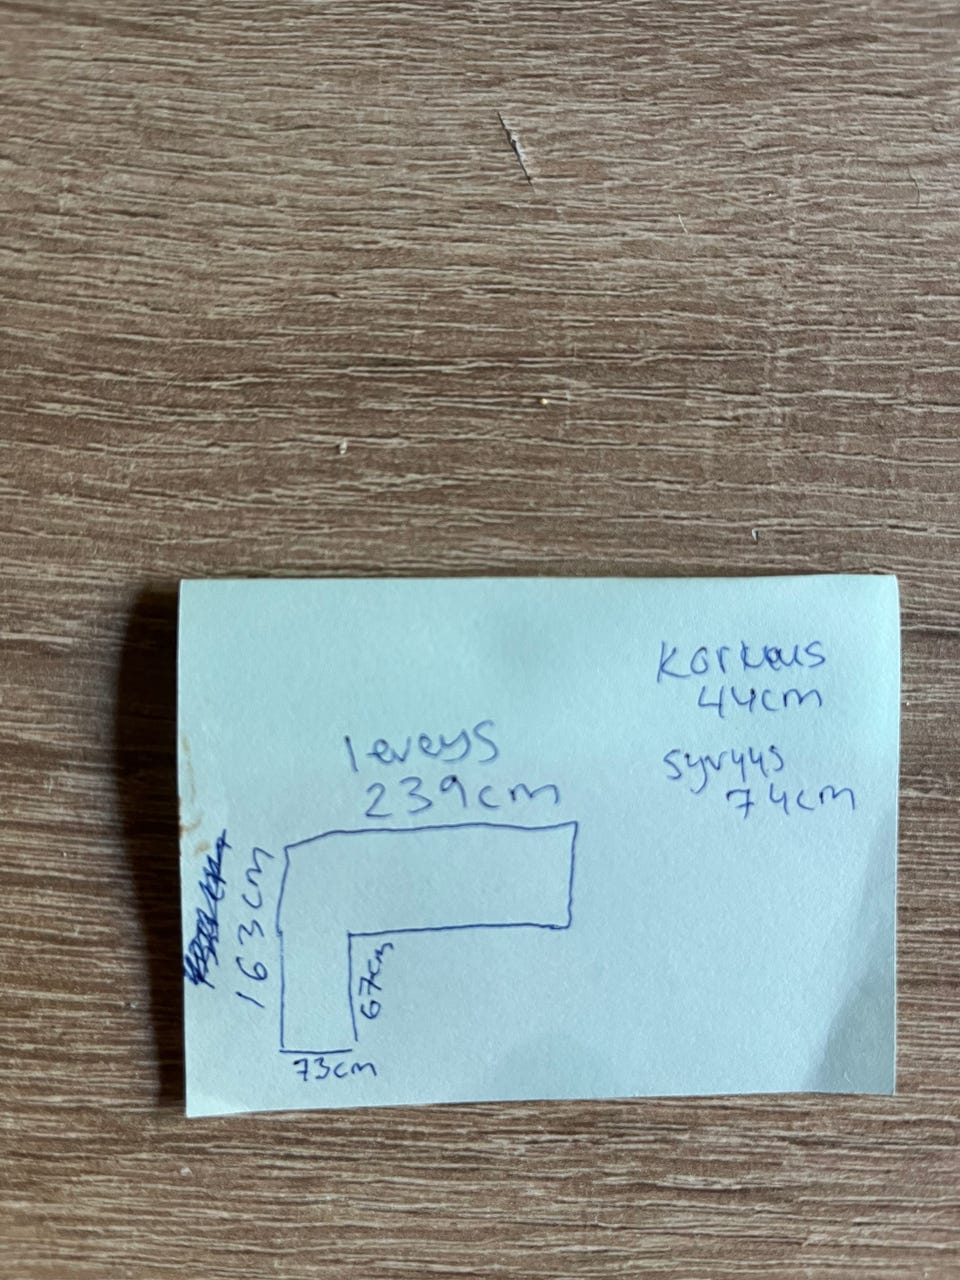 Korkeus
44cm
leveys
syvyys
239cm
74cm
163cm
67cm
73cm